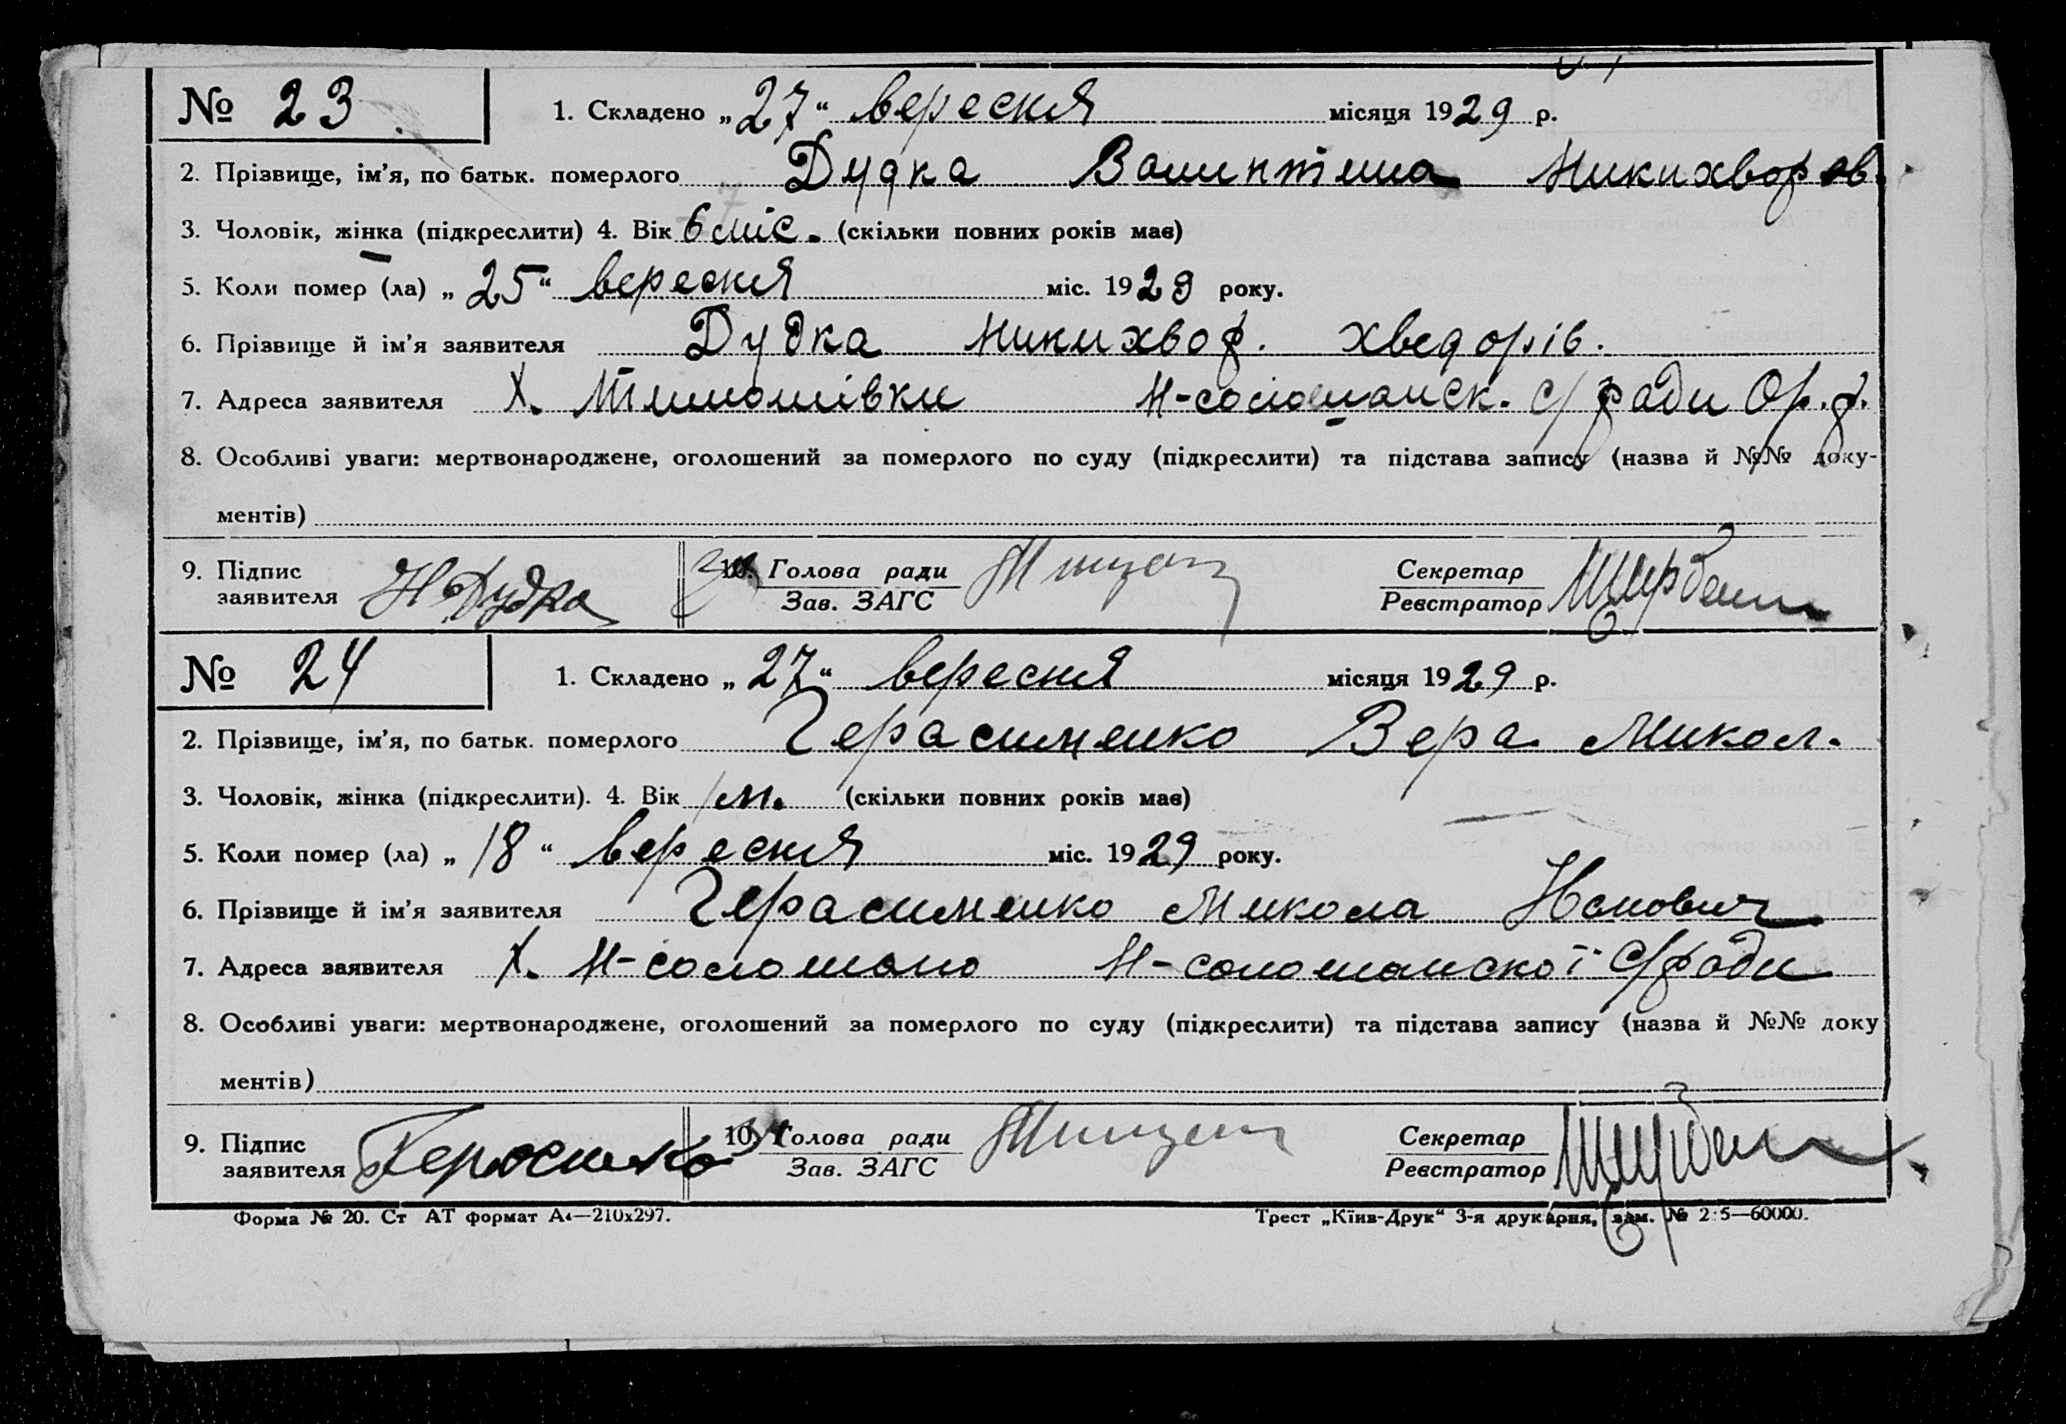 № 23 1. Складено „27“ вересня місяця 1929 р.
2. Прізвище, ім’я, по батьк. померлого Дудка Валинтина Никихворов.
3. Чоловік, жінка (підкреслити) 4. Вік 6 міс. (скільки повних років має)
5. Коли помер (ла) „25“ вересня міс. 1929 року.
6. Прізвище й ім’я заявителя Дудка Никихвор. Хведорів.
7. Адреса заявителя Х. Тимошівки Н-солошанськ. с/ради Ор. р.
8. Особливі уваги: мертвонароджене, оголошений за померлого по суду (підкреслити) та підстава запису (назва й №№ доку-
ментів)
9. Підпис заявителя Н Дудка 10. Голова ради Зав. ЗАГС Секретар Реєстратор
№ 24 1. Складено „27“ вересня місяця 1929 р.
2. Прізвище, ім’я, по батьк. померлого Герасименко Вера Микол.
3. Чоловік, жінка (підкреслити). 4. Вік 1 м. (скільки повних років має)
5. Коли помер (ла) „18“ вересня міс. 1929 року.
6. Прізвище й ім’я заявителя Герасименко Микола
7. Адреса заявителя Х. Н-солошино Н-солошанської с/ради
8. Особливі уваги: мертвонароджене, оголошений за померлого по суду (підкреслити) та підстава запису (назва й №№ доку
ментів)
9. Підпис заявителя 10. Голова ради Зав. ЗАГС Секретар Реєстратор
Форма № 20. Ст АТ формат А4—210х297. Трест „Київ-Друк“ 3-я друкарня, зам. №